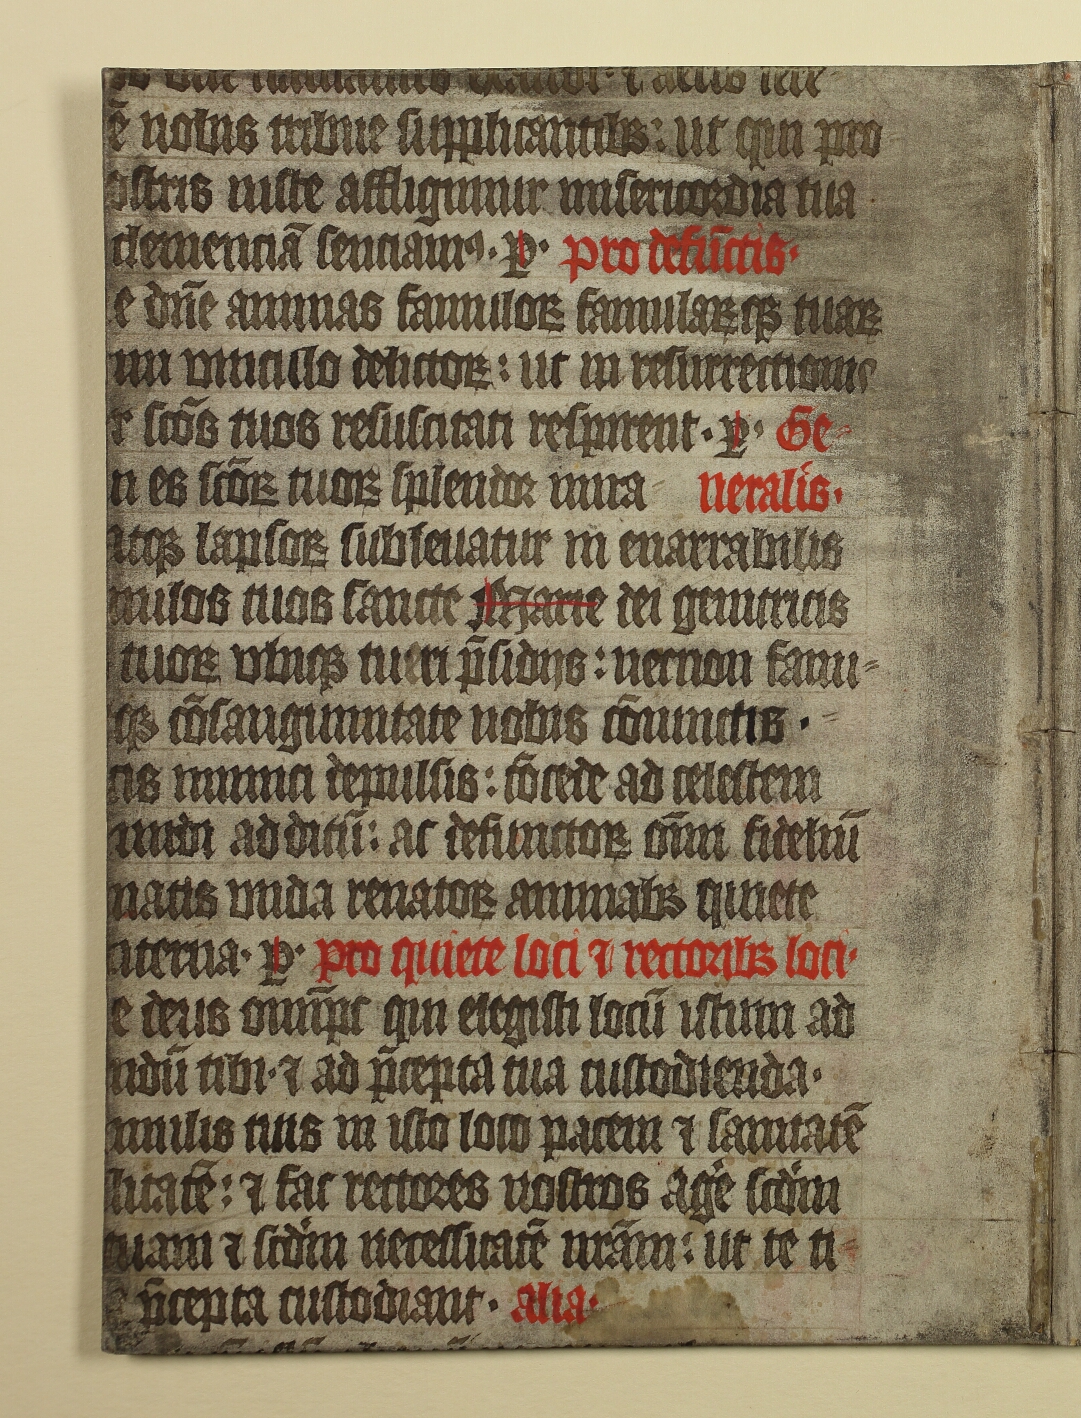 ē nobis tribue supplicantibꝫ: ut qui pro
ostris iuste affligimur misericordia tua
clemenciā senciamꝰ. P. Pro defūctis.
e dn̄e animas famuloꝝ famulaꝝqꝫ tuaꝝ
vinculo delictoꝝ: ut in resurrectionis
r sctōs tuos resuscitati respirent. P. Ge-
n es sctōꝝ tuoꝝ splendor mira- neralis.
atqꝫ lapsoꝝ subleuatur inenarrabilis
mulos tuos sancte Marie dei genitricis
tuoꝝ vbiqꝫ tueri p̄sidijs: necnon fami-
qꝫ cōsanguinitate nobis cōiunctis.
cis inimici depulsis: cōcede ad celestem
undi additū: ac defunctoꝝ om̄i fideliū
matis vnda renatoꝝ animabꝫ quiete
aterna. P. Pro quiete loci ⁊ rectoribꝫ loci.
e deus omīps qui elegisti locū istum ad
ndū tibi. ⁊ ad p̄cepta tua custodienda.
amulis tuis in isto loco pacem ⁊ sanitatē
litatē: ⁊ fac rectores nostros agē scd̄m
tuam ⁊ scd̄m necessitatē nrām: ut te ti-
p̄cepta custodiant. alia.